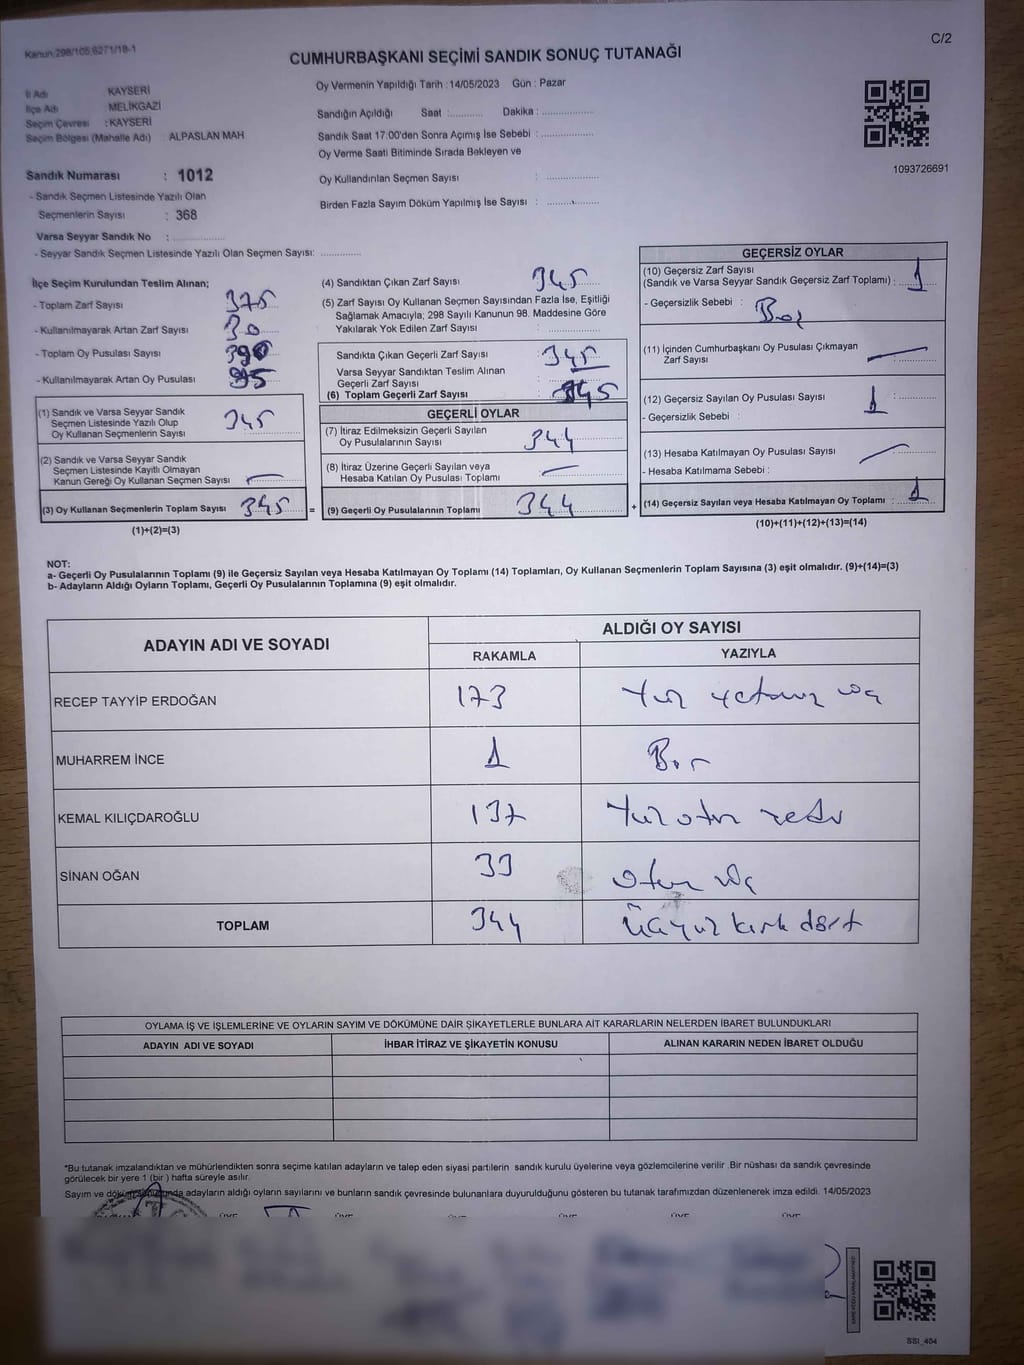 Kanun:298/105,6271/18-1
C/2
CUMHURBAŞKANI SEÇİMİ SANDIK SONUÇ TUTANAĞI
Oy Vermenin Yapıldığı Tarih : 14/05/2023 Gün : Pazar
İl Adı KAYSERİ
İlçe Adı MELİKGAZİ
Seçim Çevresi : KAYSERİ
Seçim Bölgesi (Mahalle Adı) : ALPASLAN MAH
Sandığın Açıldığı Saat : Dakika :
Sandık Saat 17:00'den Sonra Açımış İse Sebebi :
Oy Verme Saati Bitiminde Sırada Bekleyen ve
Oy Kullandırılan Seçmen Sayısı :
Birden Fazla Sayım Döküm Yapılmış İse Sayısı :
1093726691
Sandık Numarası : 1012
- Sandık Seçmen Listesinde Yazılı Olan
Seçmenlerin Sayısı : 368
Varsa Seyyar Sandık No :
- Seyyar Sandık Seçmen Listesinde Yazılı Olan Seçmen Sayısı:
İlçe Seçim Kurulundan Teslim Alınan;
- Toplam Zarf Sayısı 375
- Kullanılmayarak Artan Zarf Sayısı 30
- Toplam Oy Pusulası Sayısı
- Kullanılmayarak Artan Oy Pusulası
(1) Sandık ve Varsa Seyyar Sandık
Seçmen Listesinde Yazılı Olup
Oy Kullanan Seçmenlerin Sayısı 345
(2) Sandık ve Varsa Seyyar Sandık
Seçmen Listesinde Kayıtlı Olmayan
Kanun Gereği Oy Kullanan Seçmen Sayısı
(3) Oy Kullanan Seçmenlerin Toplam Sayısı 345 =
(1)+(2)=(3)
(4) Sandıktan Çıkan Zarf Sayısı 345
(5) Zarf Sayısı Oy Kullanan Seçmen Sayısından Fazla İse, Eşitliği
Sağlamak Amacıyla; 298 Sayılı Kanunun 98. Maddesine Göre
Yakılarak Yok Edilen Zarf Sayısı :
Sandıkta Çıkan Geçerli Zarf Sayısı 345
Varsa Seyyar Sandıktan Teslim Alınan
Geçerli Zarf Sayısı
(6) Toplam Geçerli Zarf Sayısı 345
GEÇERLİ OYLAR
(7) İtiraz Edilmeksizin Geçerli Sayılan
Oy Pusulalarının Sayısı 344
(8) İtiraz Üzerine Geçerli Sayılan veya
Hesaba Katılan Oy Pusulası Toplamı
(9) Geçerli Oy Pusulalarının Toplamı 344 +
GEÇERSİZ OYLAR
(10) Geçersiz Zarf Sayısı
(Sandık ve Varsa Seyyar Sandık Geçersiz Zarf Toplamı) : 1
- Geçersizlik Sebebi : Boş
(11) İçinden Cumhurbaşkanı Oy Pusulası Çıkmayan
Zarf Sayısı
(12) Geçersiz Sayılan Oy Pusulası Sayısı 1
- Geçersizlik Sebebi :
(13) Hesaba Katılmayan Oy Pusulası Sayısı
- Hesaba Katılmama Sebebi :
(14) Geçersiz Sayılan veya Hesaba Katılmayan Oy Toplamı : 1
(10)+(11)+(12)+(13)=(14)
NOT:
a- Geçerli Oy Pusulalarının Toplamı (9) ile Geçersiz Sayılan veya Hesaba Katılmayan Oy Toplamı (14) Toplamları, Oy Kullanan Seçmenlerin Toplam Sayısına (3) eşit olmalıdır. (9)+(14)=(3)
b- Adayların Aldığı Oyların Toplamı, Geçerli Oy Pusulalarının Toplamına (9) eşit olmalıdır.
ADAYIN ADI VE SOYADI ALDIĞI OY SAYISI
RAKAMLA YAZIYLA
RECEP TAYYİP ERDOĞAN 173 Yüz yetmiş üç
MUHARREM İNCE 1 Bir
KEMAL KILIÇDAROĞLU 137 Yüz otuz yedi
SİNAN OĞAN 33 otuz üç
TOPLAM 344 Üçyüz kırk dört
OYLAMA İŞ VE İŞLEMLERİNE VE OYLARIN SAYIM VE DÖKÜMÜNE DAİR ŞİKAYETLERLE BUNLARA AİT KARARLARIN NELERDEN İBARET BULUNDUKLARI
ADAYIN ADI VE SOYADI İHBAR İTİRAZ VE ŞİKAYETİN KONUSU ALINAN KARARIN NEDEN İBARET OLDUĞU
*Bu tutanak imzalandıktan ve mühürlendikten sonra seçime katılan adayların ve talep eden siyasi partilerin sandık kurulu üyelerine veya gözlemcilerine verilir .Bir nüshası da sandık çevresinde
görülecek bir yere 1 (bir ) hafta süreyle asılır.
Sayım ve adayların aldığı oyların sayılarını ve bunların sandık çevresinde bulunanlara duyurulduğunu gösteren bu tutanak tarafımızdan düzenlenerek imza edildi. 14/05/2023
SSI_404